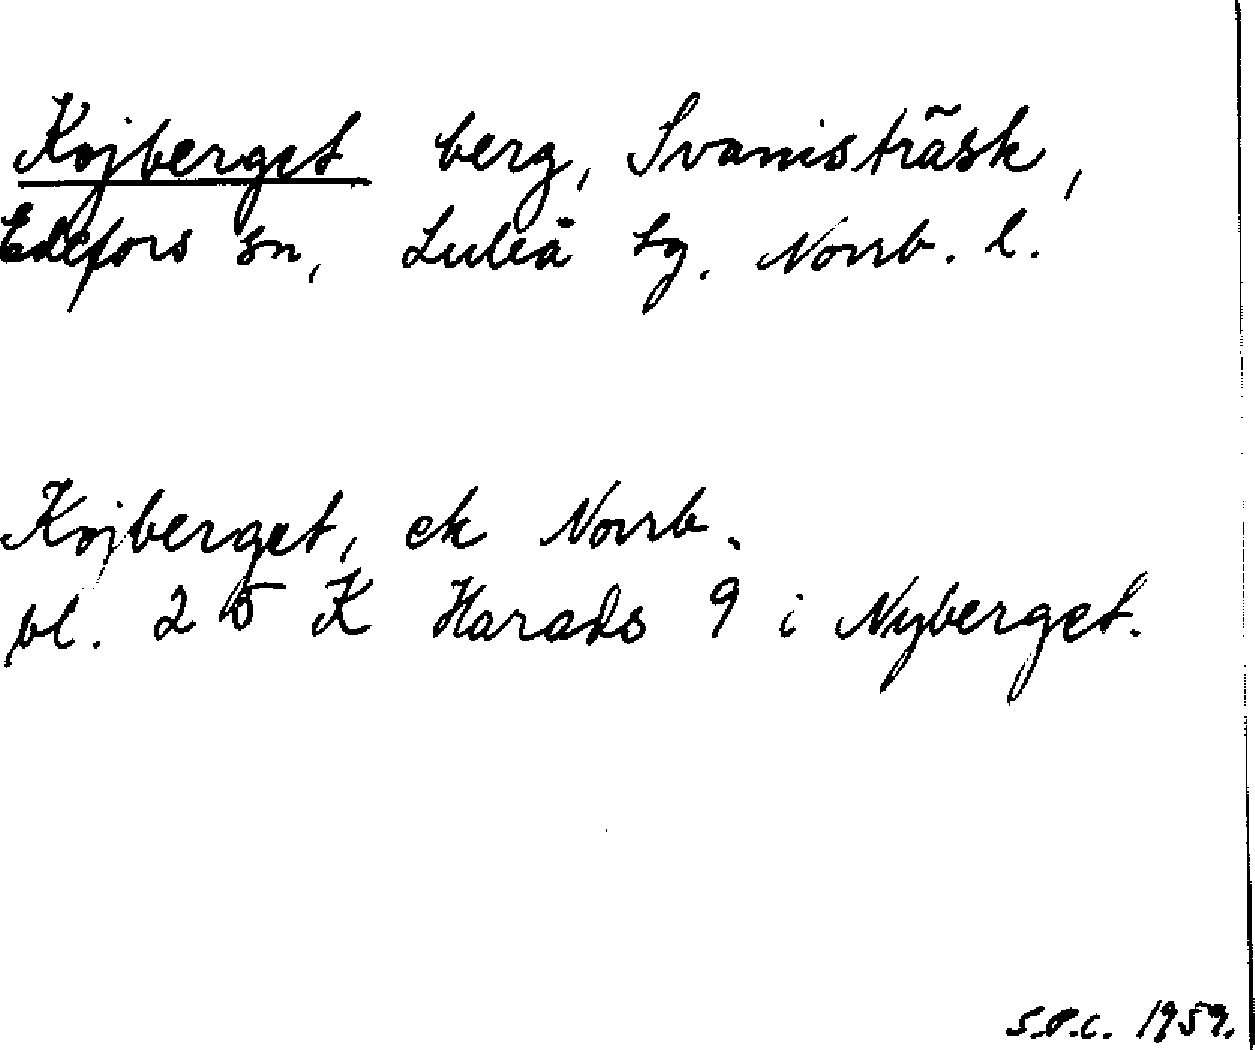 Kojberget berg, Svanisträsk,
Edefors sn, Luleå tg. Norrb. l.
Kojberget, ek Norrb.
bl. 25 K Harads 9 i Nyberget.
S.O.C. 1959.